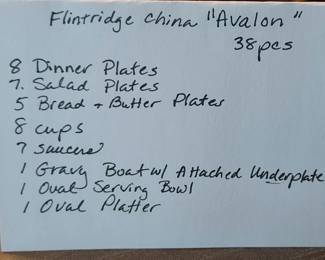 Flintridge China "Avalon"
38pcs
8 Dinner Plates
7. Salad Plates
5 Bread + Butter Plates
8 cups
7 saucers
1 Gravy Boat w/ Attached Underplate
1 Oval Serving Bowl
1 Oval Platter